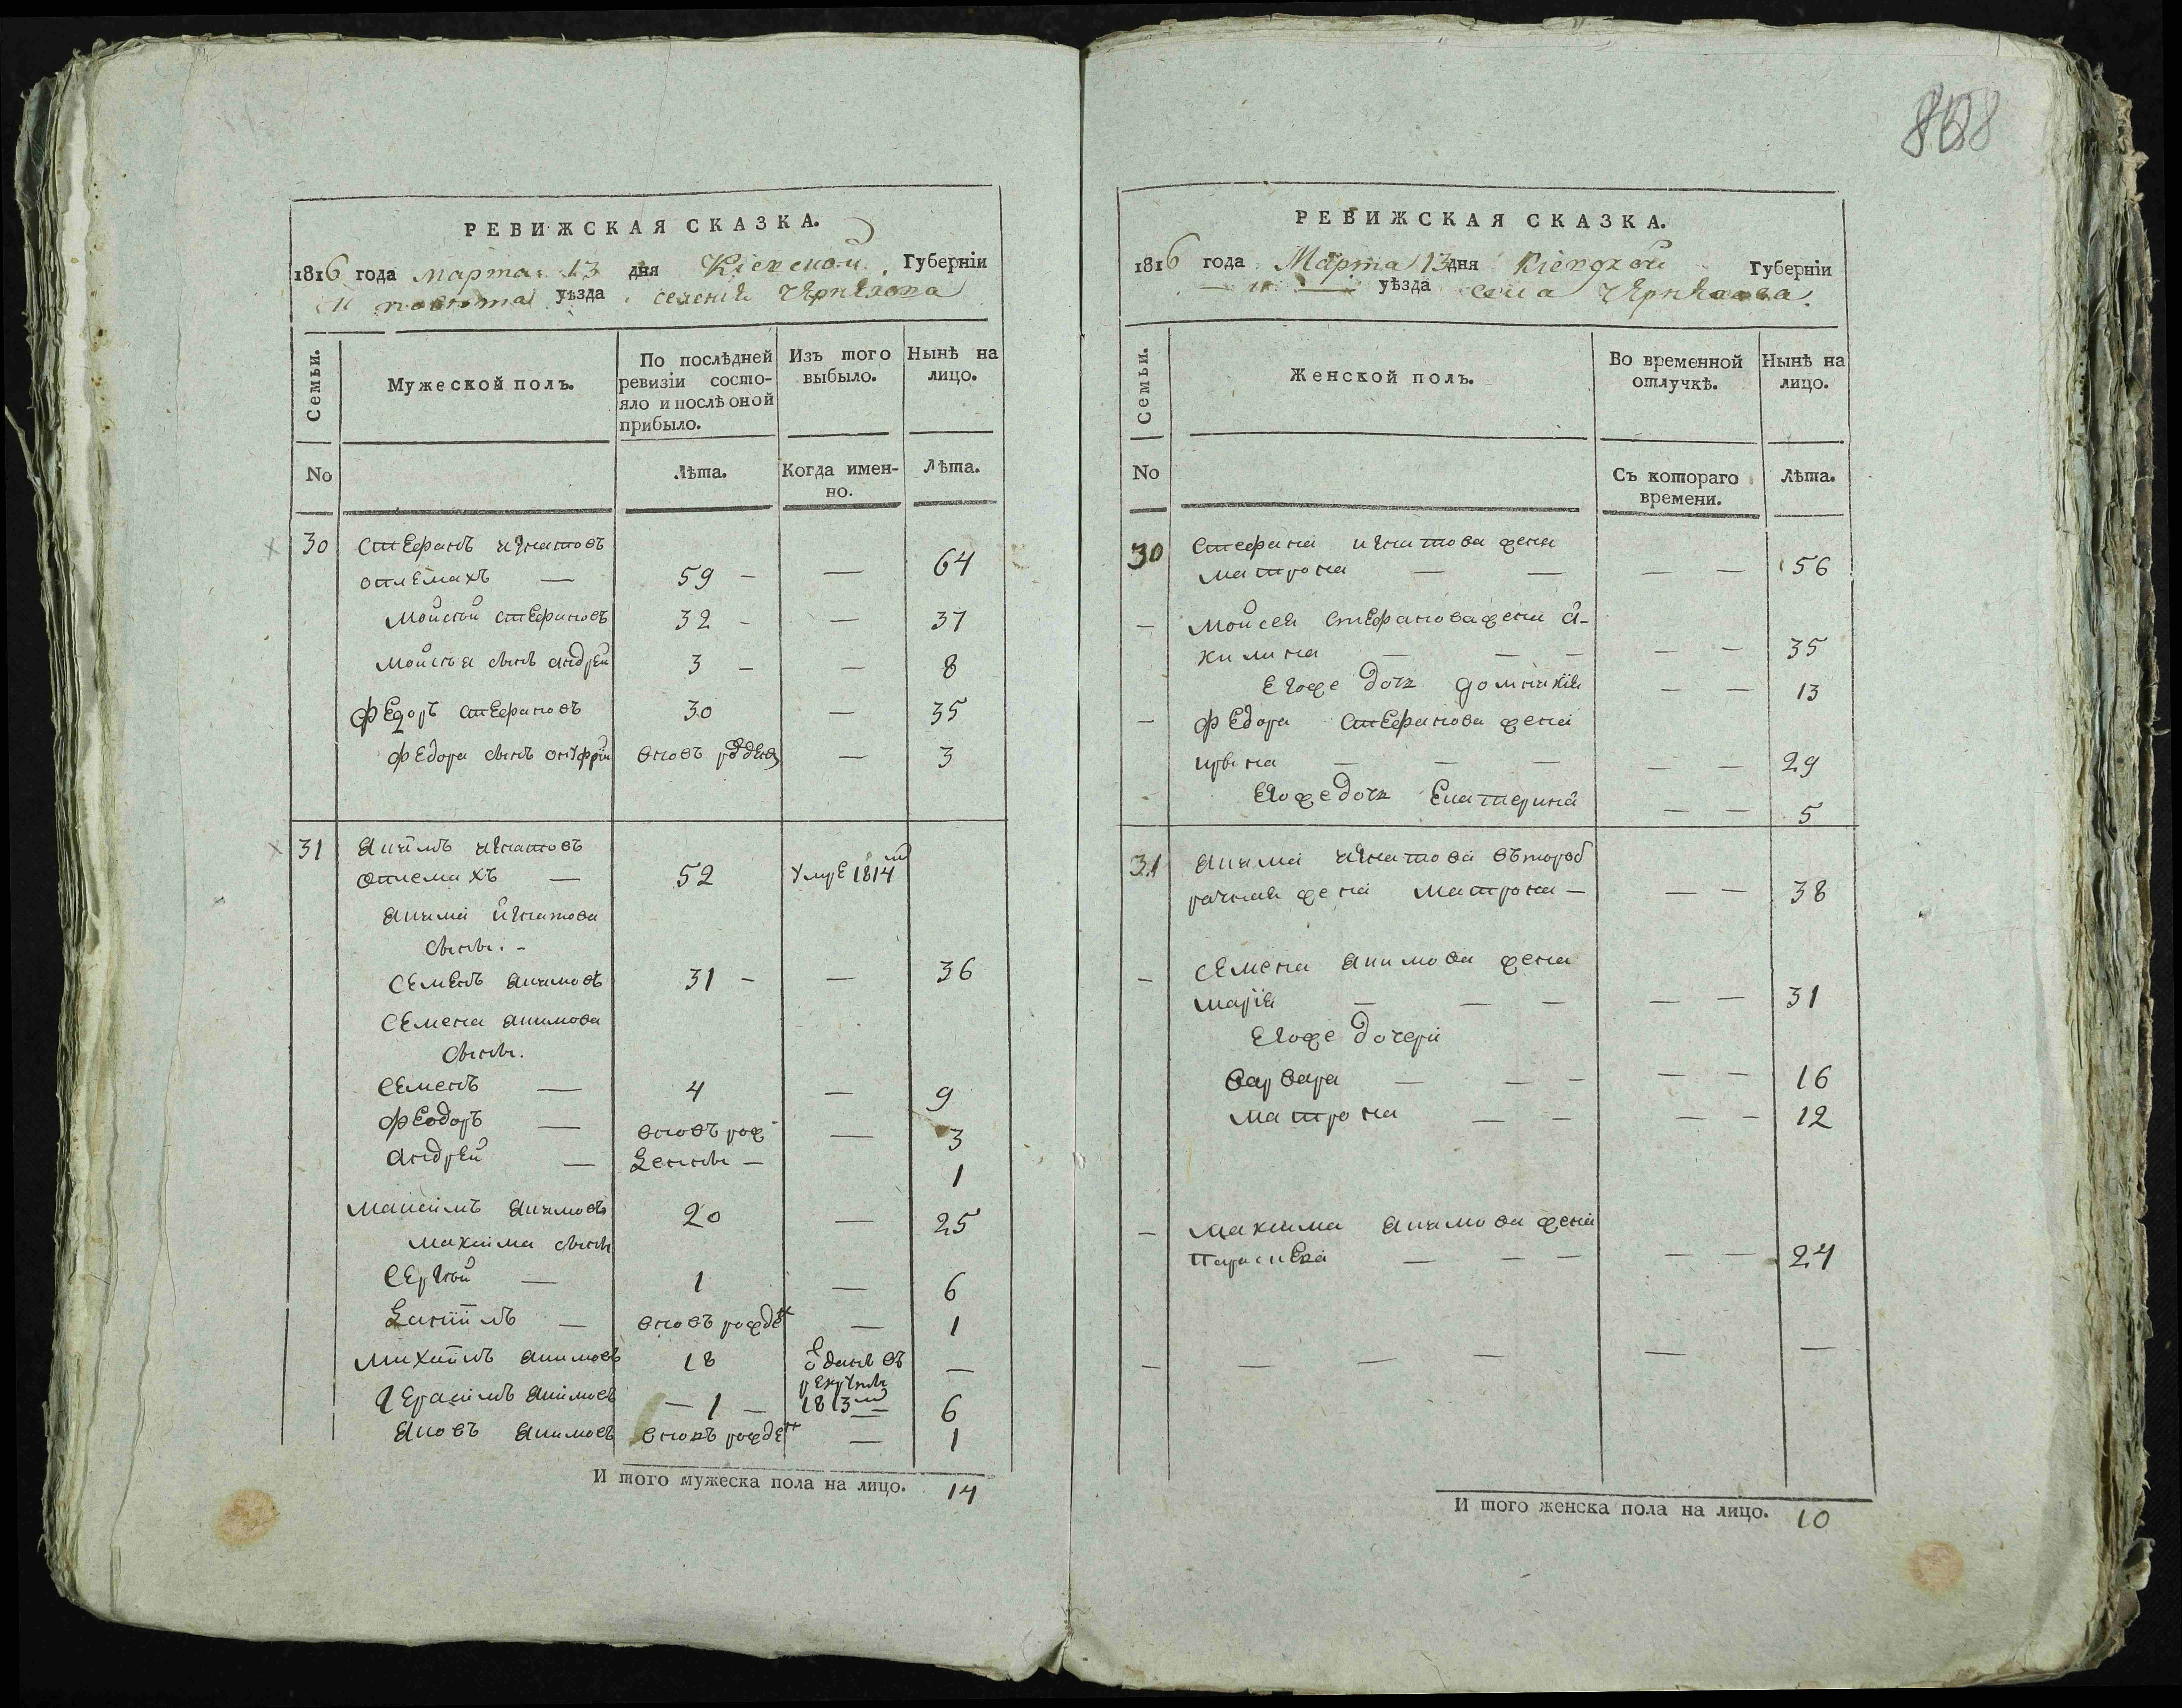 РЕВИЖСКАЯ СКАЗКА.
1816 года марта 13 дня Кіевской Губерніи
и повѣта уѣзда селенія Чернѣхова
Семьи.
Мужеской полъ.
По послѣдней ревизіи состо-
яло и послѣ оной
прибыло.
Изъ того выбыло.
Нынѣ на лицо.
No
Лѣта.
Когда имен-
но.
Лѣта.
30 Стефанъ игнатовъ
59 — — 64
Мойсѣй стефановъ 32 — — 37
Мойсѣя сынъ андрей 3 — — 8
федоръ стефановъ 30 — 35
федора сынъ онуфрій вновъ рожден — 3
31 Якимъ игнатовъ
52 Умре 1814
Якима игнатова
сыны. -
Семенъ якимовъ 31 — — 36
Семена якимова
сыны.
Семенъ — 4 — 9
феодоръ — вновъ рож — 3
андрей — денны — 1
Максимъ якимовъ 20 — 25
Максима сыны
Сергѣй — 1 — 6
Данiилъ — вновъ рожде — 1
Михаилъ якимовъ 18 о̂данъ въ —
рекруты
Герасимъ якимовъ — 1 — 1813 6
Яковъ якимовъ вновъ рожде — 1
И того мужеска пола на лицо. 14
858
РЕВИЖСКАЯ СКАЗКА.
1816 года Марта 13 дня Кіевской Губерніи
— и — уѣзда села Чернѣхова.
Семьи.
Женской полъ.
Во временной
отлучкѣ.
Нынѣ на
лицо.
No
Съ котораго
времени.
Лѣта.
30 Стефана игнатова жена
матрона — — — — 56
— Мойсея стефанова жена а-
килина — — — — — 35
Егоже дочь домникія — — 13
— федора стефанова жена
ирина — — — — — 29
Егоже дочь Екатерина — — 5
31 Якима игнатова второб
рачная жена матрона — — — 38
— Семена якимова жена
марія — — — — — 31
Егоже дочери
варвара — — — — — 16
матрона — — — — 12
— Максима якимова жена
Параскева — — — — — 24
— — — — — —
И того женска пола на лицо. 10